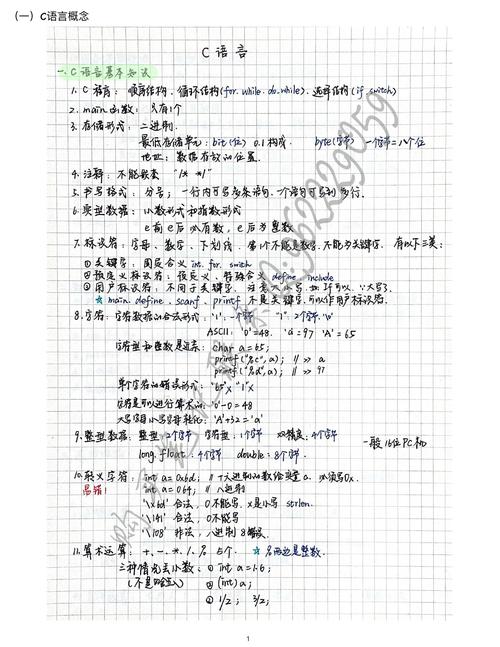 （一）C语言概念
C 语言
一. C 语言基本知识
1. C 程序: 顺序结构、循环结构(for. while. do.while). 选择结构(if. switch)
2. main函数: 只有1个
3. 存储形式: 二进制.
最低存储单元: bit(位) 0.1 构成. byte(字节) 一个字节=八个位
地址: 数据存放的位置.
4. 注释: 不能嵌套 "/* */"
5. 书写格式: 分号; 一行内可写多条语句. 一个语句可写到多行.
6. 实型数据: 小数形式和指数形式
e前e后必有数, e后为整数
7. 标识符: 字母、数字、下划线. 第1个不能是数字. 不能为关键字. 有以下三类:
① 关键字: 固定含义 int. for. switch
② 预定义标识符: 预定义、特殊含义 define. include
③ 用户标识符: 不同于关键字. 注意大小写. 如 If 可以.
☆ main. define. scanf. printf 不是关键字. 可以作用户标识符.
8. 字符: 字符数据的合法形式: '1': 一个字符 "1": 2个字符
ASCII: '0'=48. 'a'=97 'A'=65
字符型和整数是近亲: char a=65;
printf("%c", a); // >> a
printf("%d", a); // >>
单个字符的错误形式: '65'x "1"x
字符是可以进行算术的: '0'-0=48
大写字母小写字母转化: 'A'+32='a'
9. 整型数据: 整型: 2个字节 字符型: 1个字节 双精度: 4个字节
一般16位PC机
long. float: 4个字节 double: 8个字节.
10. 转义字符: int a=0x6d; // 十六进制的数给变量 a. 必须写0x
易错! int a=064; // 八进制
'\x6d' 合法, 0不能写. x是小写 strlen.
'\141' 合法, 0不能写
'\108' 非法, 八进制 8错误.
11. 算术运算: +. -. *. /. % 5个. ☆ %两边是整数.
三种情况丢小数: ① int a=1.6;
(不是四舍五入) ② (int)a;
③ 1/2; 3/2;
1